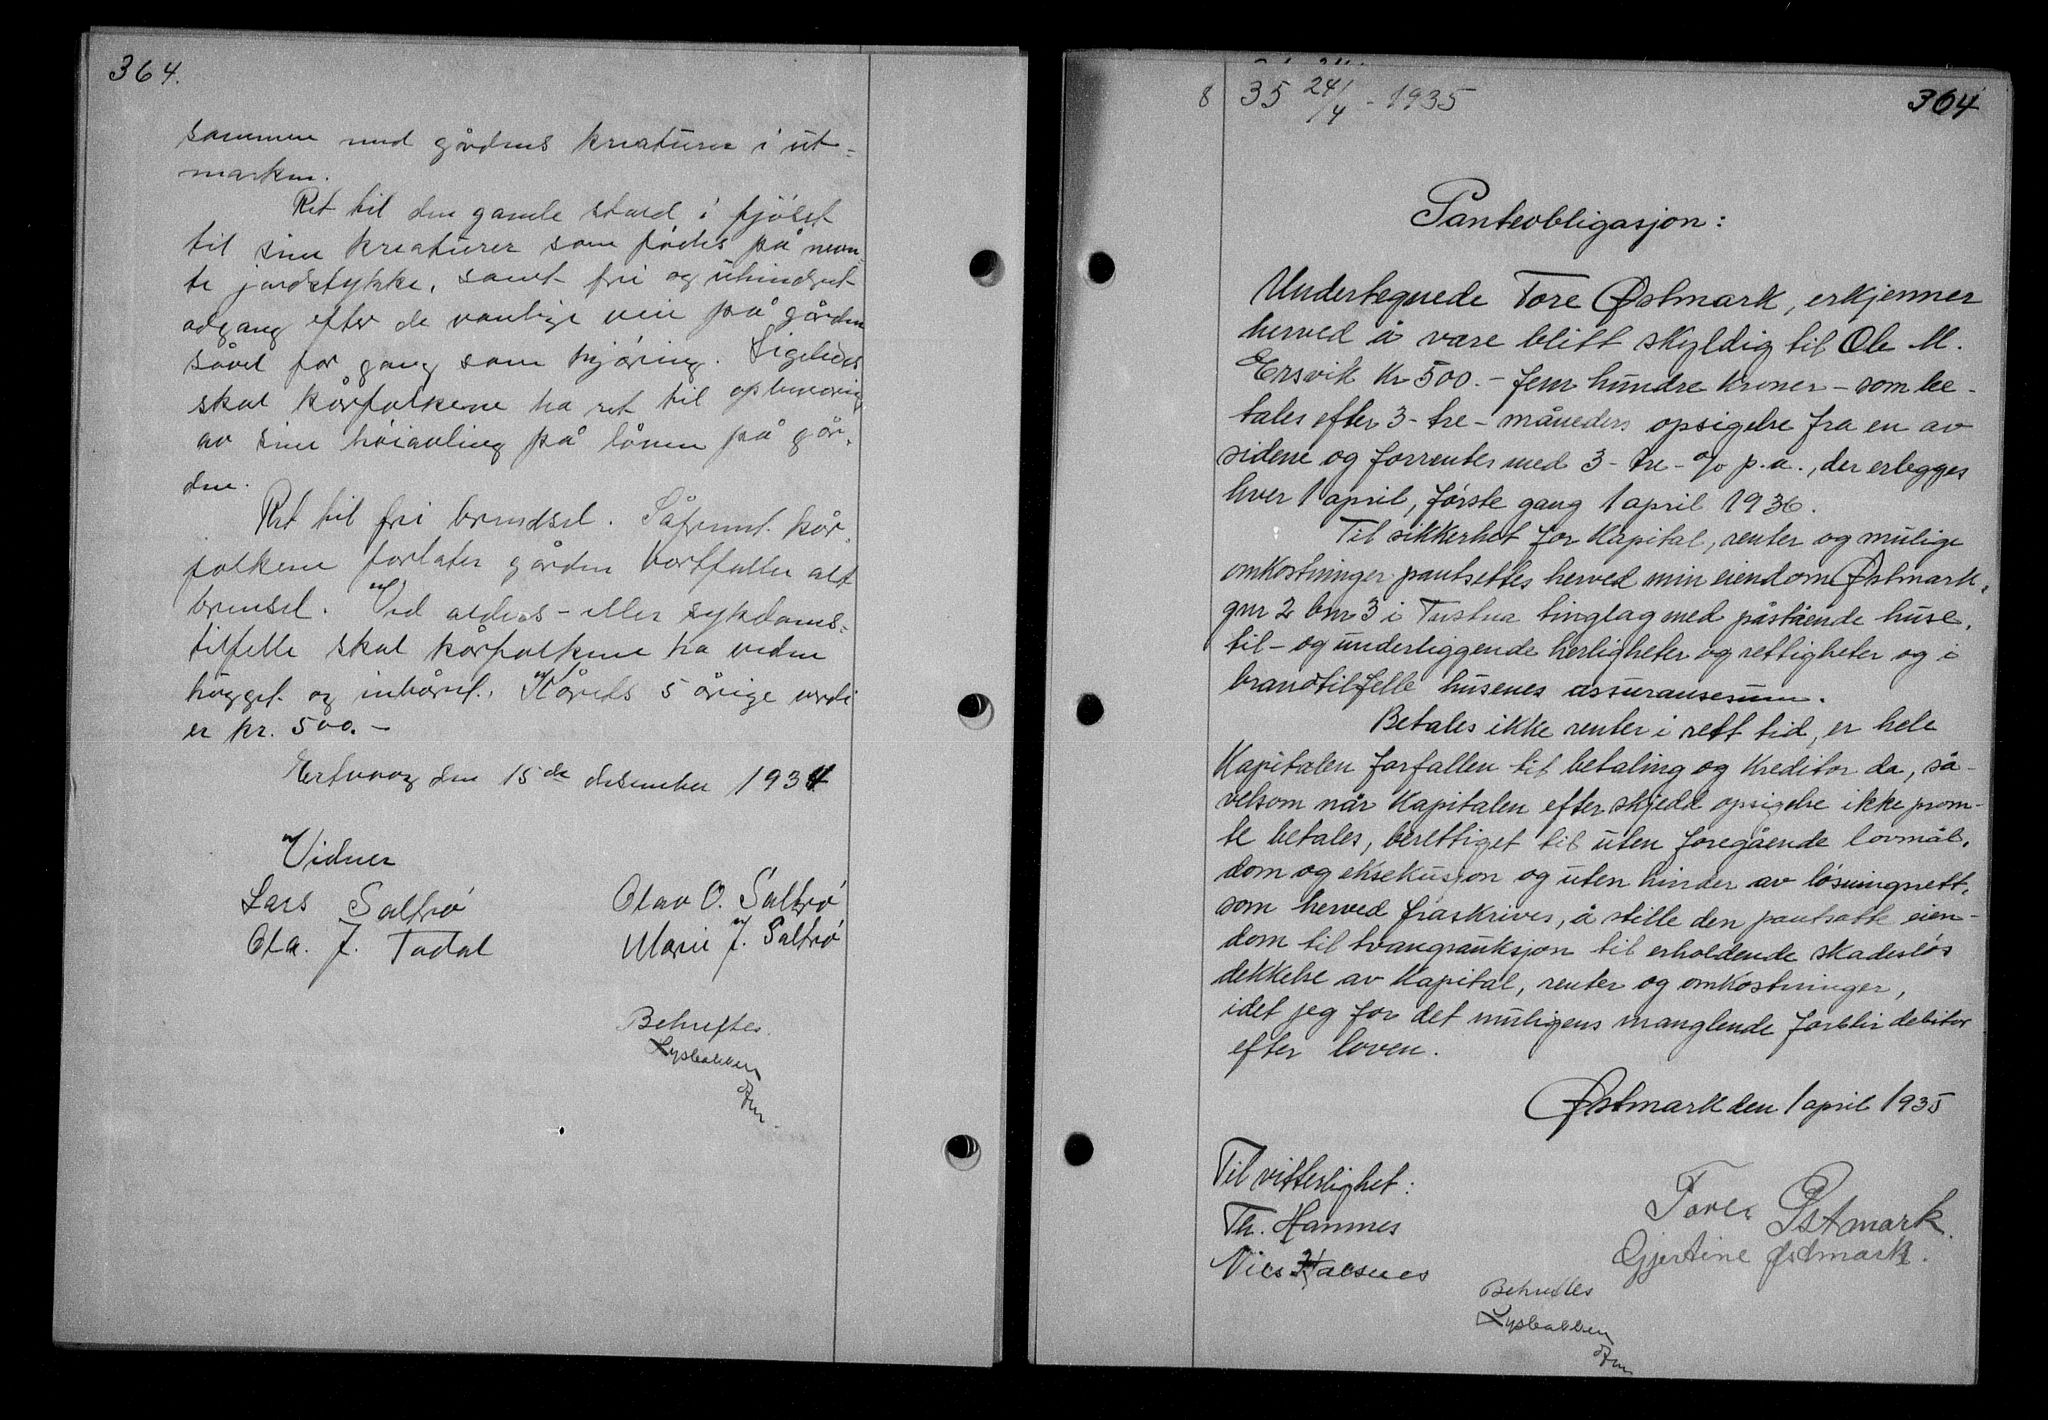 364.
sammen med gårdens kreaturer i ut-
marken.
Ret til den gamle stald i fjöset
til sine kreaturer som födes på nevn-
te jordstykke, samt fri og uhindret
adgang efter de vanlige veie på gården
såvel for gang som kjöring. Ligeledes
skal kårfolkene ha ret til opbevaring
av sine höiavling på låven på går-
den.
Ret til fri brendsel. Såfremt kår-
folkene forlater gården bortfaller alt
brensel. Ved alders- eller sykdoms-
tilfelle skal kårfolkene ha veden
hugget og inbåret. Kårets 5 årige verdi
er kr. 500.-
Ertvaag den 15de desember 1934
Vidner
Lars Saltrö
Ola. J. Todal
Olav O. Saltrö
Marie J. Saltrö
Bekreftes.
Lysbakken
fm.
8 35 24/4 - 1935
364
Panteobligasjon:
Undertegnede Tore Østmark, erkjenner
herved å være blitt skyldig til Ole M.
Ersvik Kr 500.- fem hundre kroner - som be-
tales efter 3- tre - måneders opsigelse fra en av
sidene og forrentes med 3- tre - % p.a., der erlegges
hver 1 april, förste gang 1 april 1936.
Til sikkerhet for Kapital, renter og mulige
omkostninger pantsettes herved min eiendom Østmark,
gnr 2 bnr 3 i Tustna tinglag med påstående huse,
til- og underliggende herligheter og rettigheter og i
brandtilfelle husenes assuransesum.
Betales ikke renter i rett tid, er hele
Kapitalen forfallen til betaling og Kreditor da, så-
velsom når Kapitalen efter skjedd opsigelse ikke prom-
te betales, berettiget til uten foregående lovmål,
dom og eksekusjon og uten hinder av lösningsrett,
som herved fraskrives, å stille den pantsatte eien-
dom til tvangsauksjon til erholdende skadeslös
dekkelse av Kapital, renter og omkostninger,
idet jeg for det muligens manglende forblir debitor
efter loven.
Østmark den 1 april 1935
Til vitterlighet:
Th. Hamnes
Nils Halsnes
Tore Østmark.
Gjertine Østmark.
Bekreftes
Lysbakken
fm